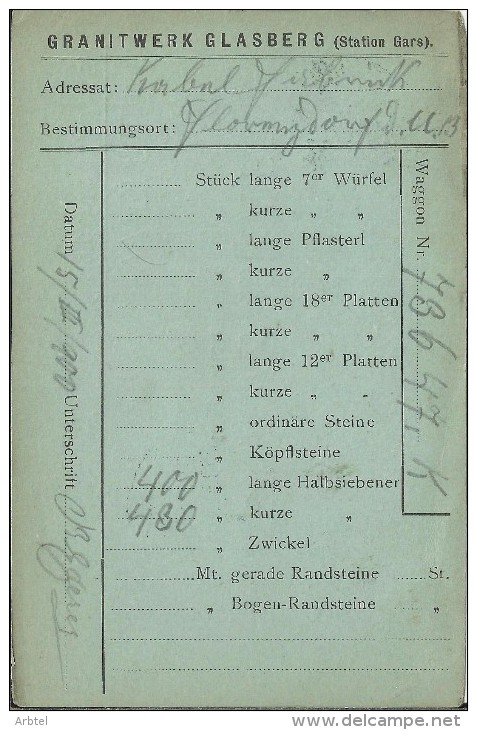 GRANITWERK GLASBERG (Station Gars).
Adressat: Kabel
Bestimmungsort: Floridsdorf
Stück lange 7er Würfel
„ kurze „ „
„ lange Pflasterl
„ kurze „
„ lange 18er Platten
„ kurze „ „
„ lange 12er Platten
„ kurze „ „
„ ordinäre Steine
„ Köpflsteine
400 „ lange Halbsiebener
480 „ kurze „
„ Zwickel
Mt. gerade Randsteine St.
„ Bogen-Randsteine „
Waggon Nr.
Datum 15/III/1900 Unterschrift
Arbtel
www.delcampe.net